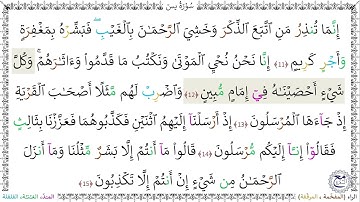 سُورَةُ يسٓ
إِنَّمَا تُنذِرُ مَنِ ٱتَّبَعَ ٱلذِّكْرَ وَخَشِيَ ٱلرَّحْمَٰنَ بِٱلْغَيْبِۖ فَبَشِّرْهُ بِمَغْفِرَةٍ
وَأَجْرٍ كَرِيمٍ (١١) إِنَّا نَحْنُ نُحْيِ ٱلْمَوْتَىٰ وَنَكْتُبُ مَا قَدَّمُوا۟ وَءَاثَٰرَهُمْۚ وَكُلَّ
شَيْءٍ أَحْصَيْنَٰهُ فِيٓ إِمَامٍ مُّبِينٍ (١٢) وَٱضْرِبْ لَهُم مَّثَلًا أَصْحَٰبَ ٱلْقَرْيَةِ
إِذْ جَآءَهَا ٱلْمُرْسَلُونَ (١٣) إِذْ أَرْسَلْنَآ إِلَيْهِمُ ٱثْنَيْنِ فَكَذَّبُوهُمَا فَعَزَّزْنَا بِثَالِثٍ
فَقَالُوٓا۟ إِنَّآ إِلَيْكُم مُّرْسَلُونَ (١٤) قَالُوا۟ مَآ أَنتُمْ إِلَّا بَشَرٌ مِّثْلُنَا وَمَآ أَنزَلَ
ٱلرَّحْمَٰنُ مِن شَيْءٍ إِنْ أَنتُمْ إِلَّا تَكْذِبُونَ (١٥)